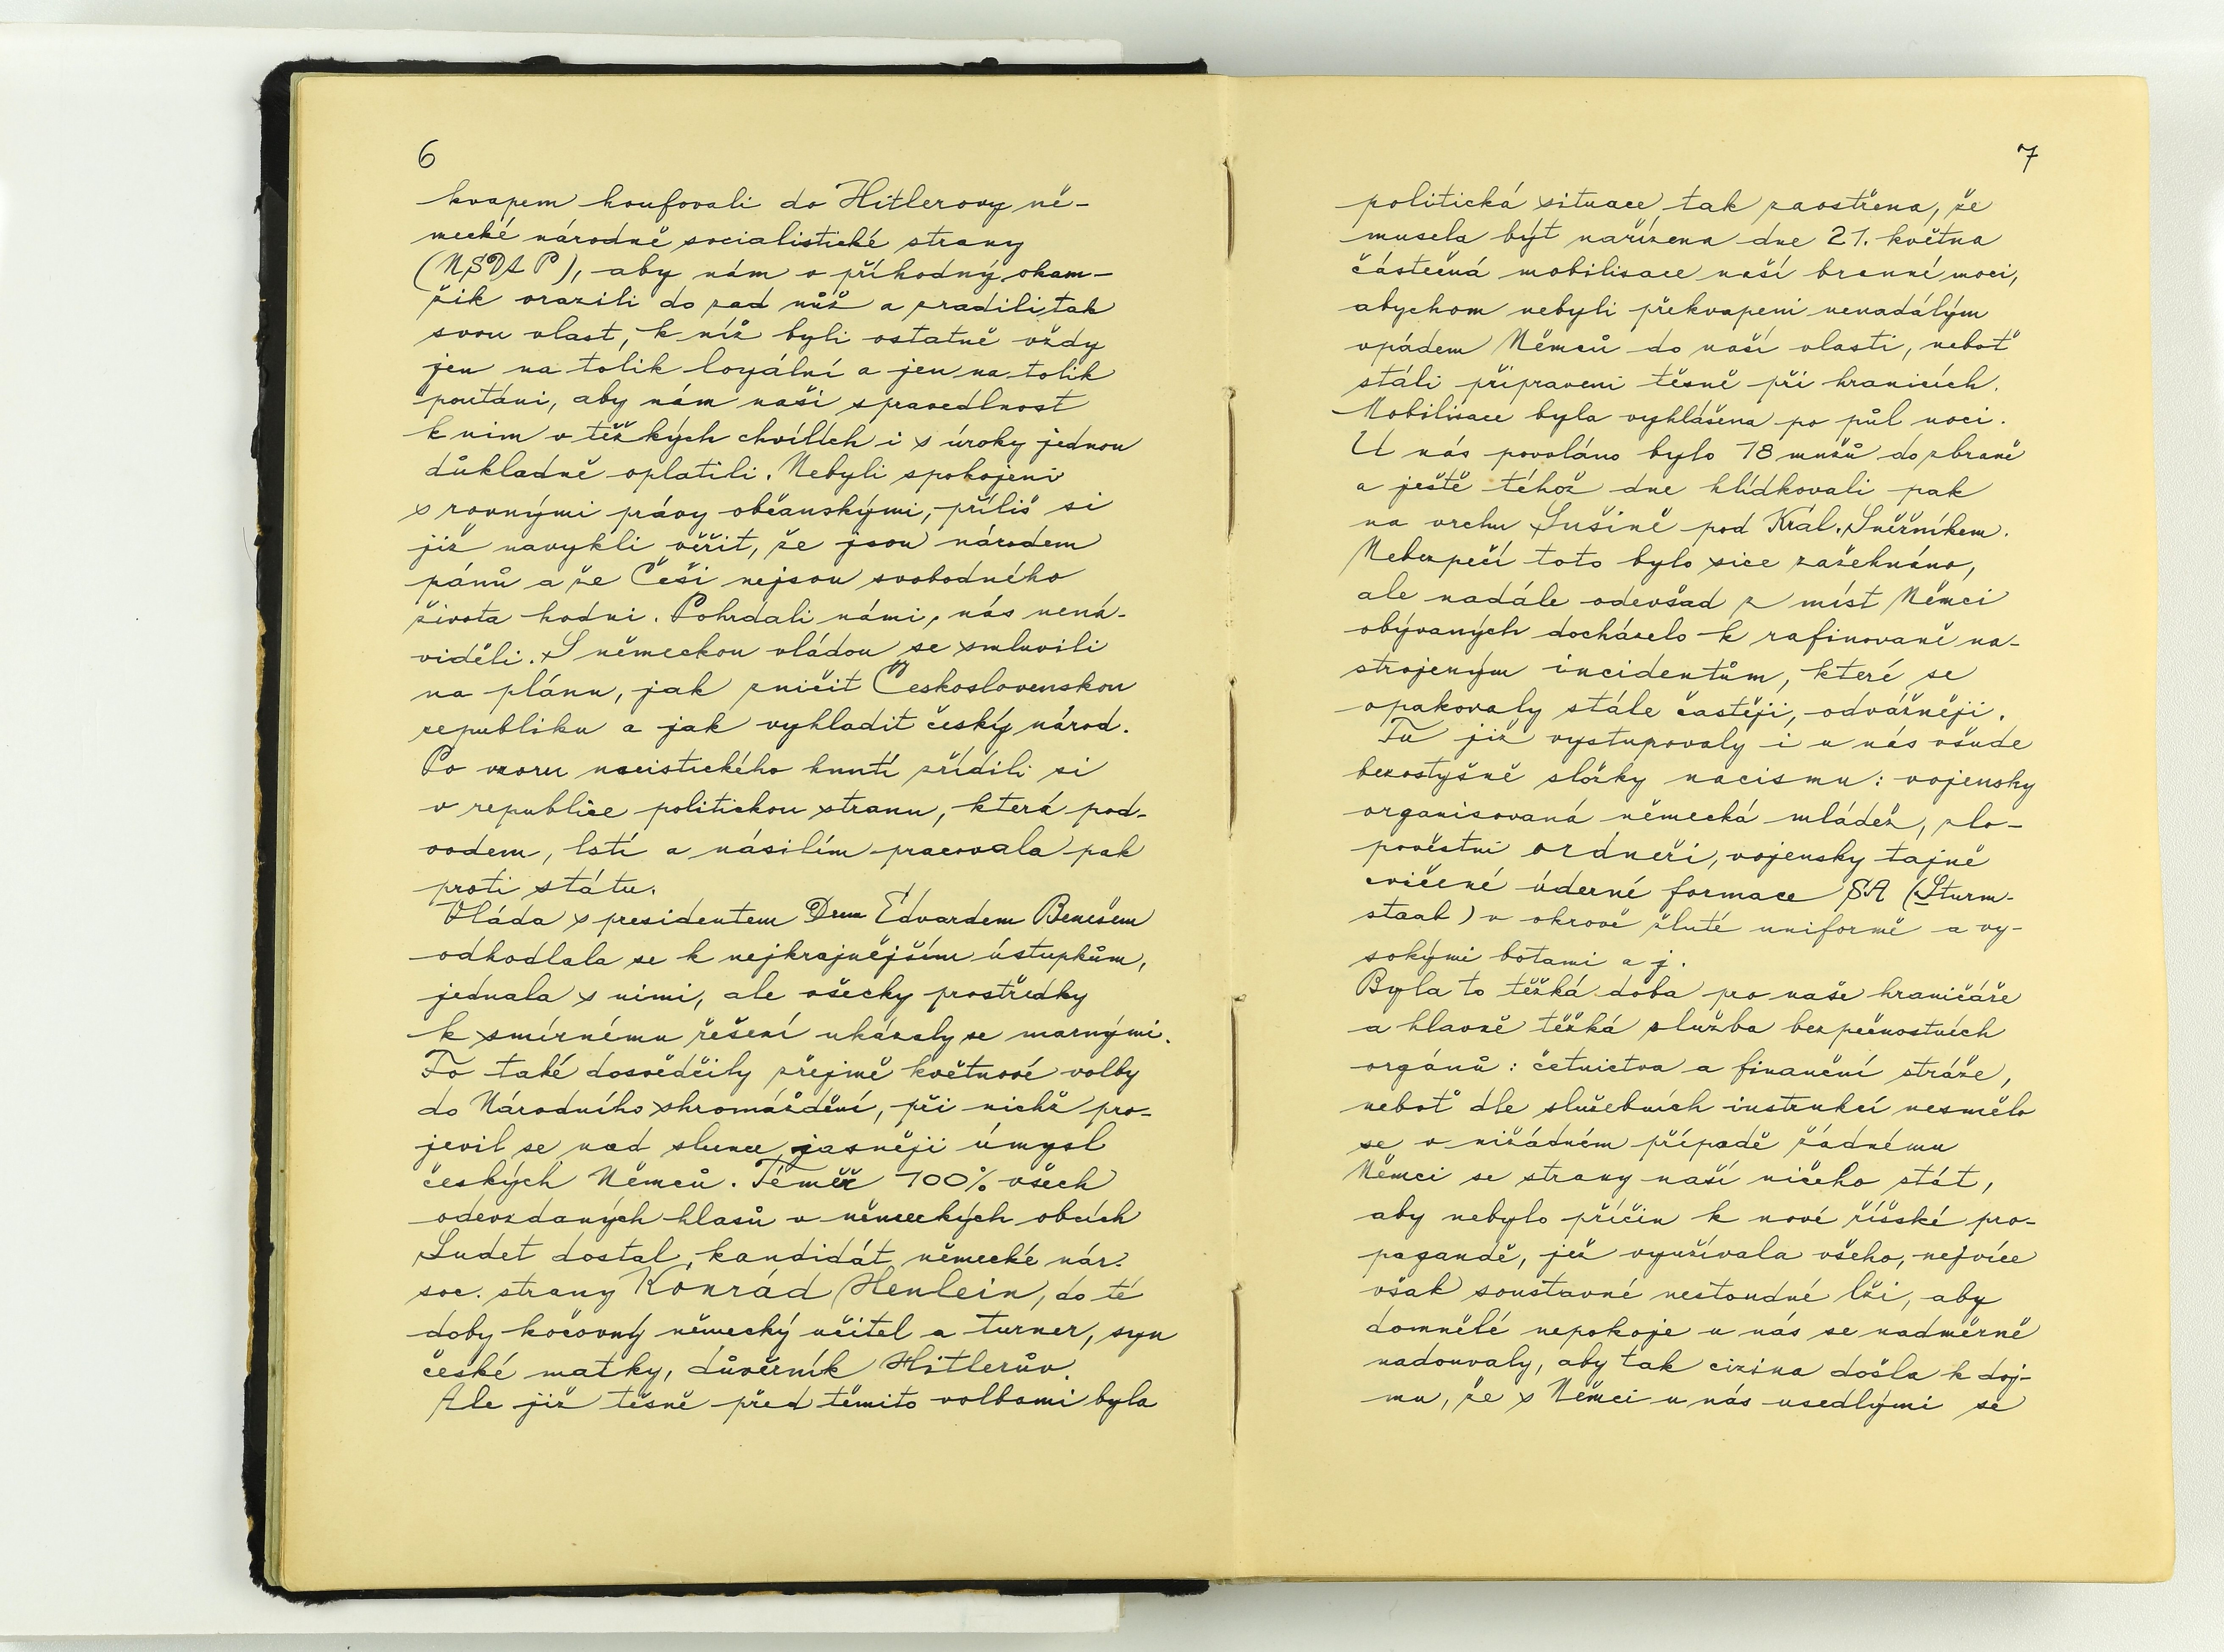 6
kvapem houfovali do Hitlerovy ně-
mecké národně socialistické strany
(NSDAP), aby nám v příhodný okam-
žik vrazili do zad nůž a zradili tak
svou vlast, k níž byli ostatně vždy
jen na tolik loyální a jen na tolik
poutáni, aby nám naši spravedlnost
k nim v těžkých chvílích i s úroky jednou
důkladně oplatili. Nebyli spokojeni
s rovnými právy občanskými, příliš si
již navykli věřit, že jsou národem
pánů a že Češi nejsou svobodného
života hodni. Pohrdali námi, nás nená-
viděli. S německou vládou se smluvili
na plánu, jak zničit Československou
republiku a jak vyhladit český národ.
Po vzoru nacistického hnutí zřídili si
v republice politickou stranu, která pod-
vodem, lstí a násilím pracovala pak
proti státu.
Vláda s presidentem Drem Edvardem Benešem
odhodlala se k nejkrajnějším ústupkům,
jednala s nimi, ale všecky prostředky
k smírnému řešení ukázaly se marnými.
To také dosvědčily zřejmě květnové volby
do Národního shromáždění, při nichž pro-
jevil se nad slunce jasněji úmysl
českých Němců. Téměř 100% všech
odevzdaných hlasů v německých obcích
Sudet dostal kandidát německé nár.
soc. strany Konrád Henlein, do té
doby kočovný německý učitel a turner, syn
české matky, důvěrník Hitlerův.
Ale již těsně před těmito volbami byla
7
politická situace tak zaostřena, že
musela být nařízena dne 21. května
částečná mobilisace naší branné moci,
abychom nebyli překvapeni nenadálým
vpádem Němců do naší vlasti, neboť
stáli připraveni těsně při hranicích.
Mobilisace byla vyhlášena po půl noci.
U nás povoláno bylo 18 mužů do zbraně
a ještě téhož dne hlídkovali pak
na vrchu Sušině pod Král. Sněžníkem.
Nebezpečí toto bylo sice zažehnáno,
ale nadále odevšad z míst Němci
obývaných docházelo k rafinovaně na-
strojeným incidentům, které se
opakovaly stále častěji, odvážněji.
Tu již vystupovaly i u nás všude
bezostyšně složky nacismu: vojensky
organisovaná německá mládež, zlo-
pověstní ordneři, vojensky tajně
cvičené úderné formace SA (Sturm-
staab) v okrově žluté uniformě a vy-
sokými botami a j.
Byla to těžká doba pro naše hraničáře
a hlavně těžká služba bezpečnostních
orgánů: četnictva a finanční stráže,
neboť dle služebních instrukcí nesmělo
se v nižádném případě žádnému
Němci se strany naší ničeho stát,
aby nebylo příčin k nové říšské pro-
pagandě, jež využívala všeho, nejvíce
však soustavné nestoudné lži, aby
domnělé nepokoje u nás se nadměrně
nadouvaly, aby tak cizina došla k doj-
mu, že s Němci u nás usedlými se